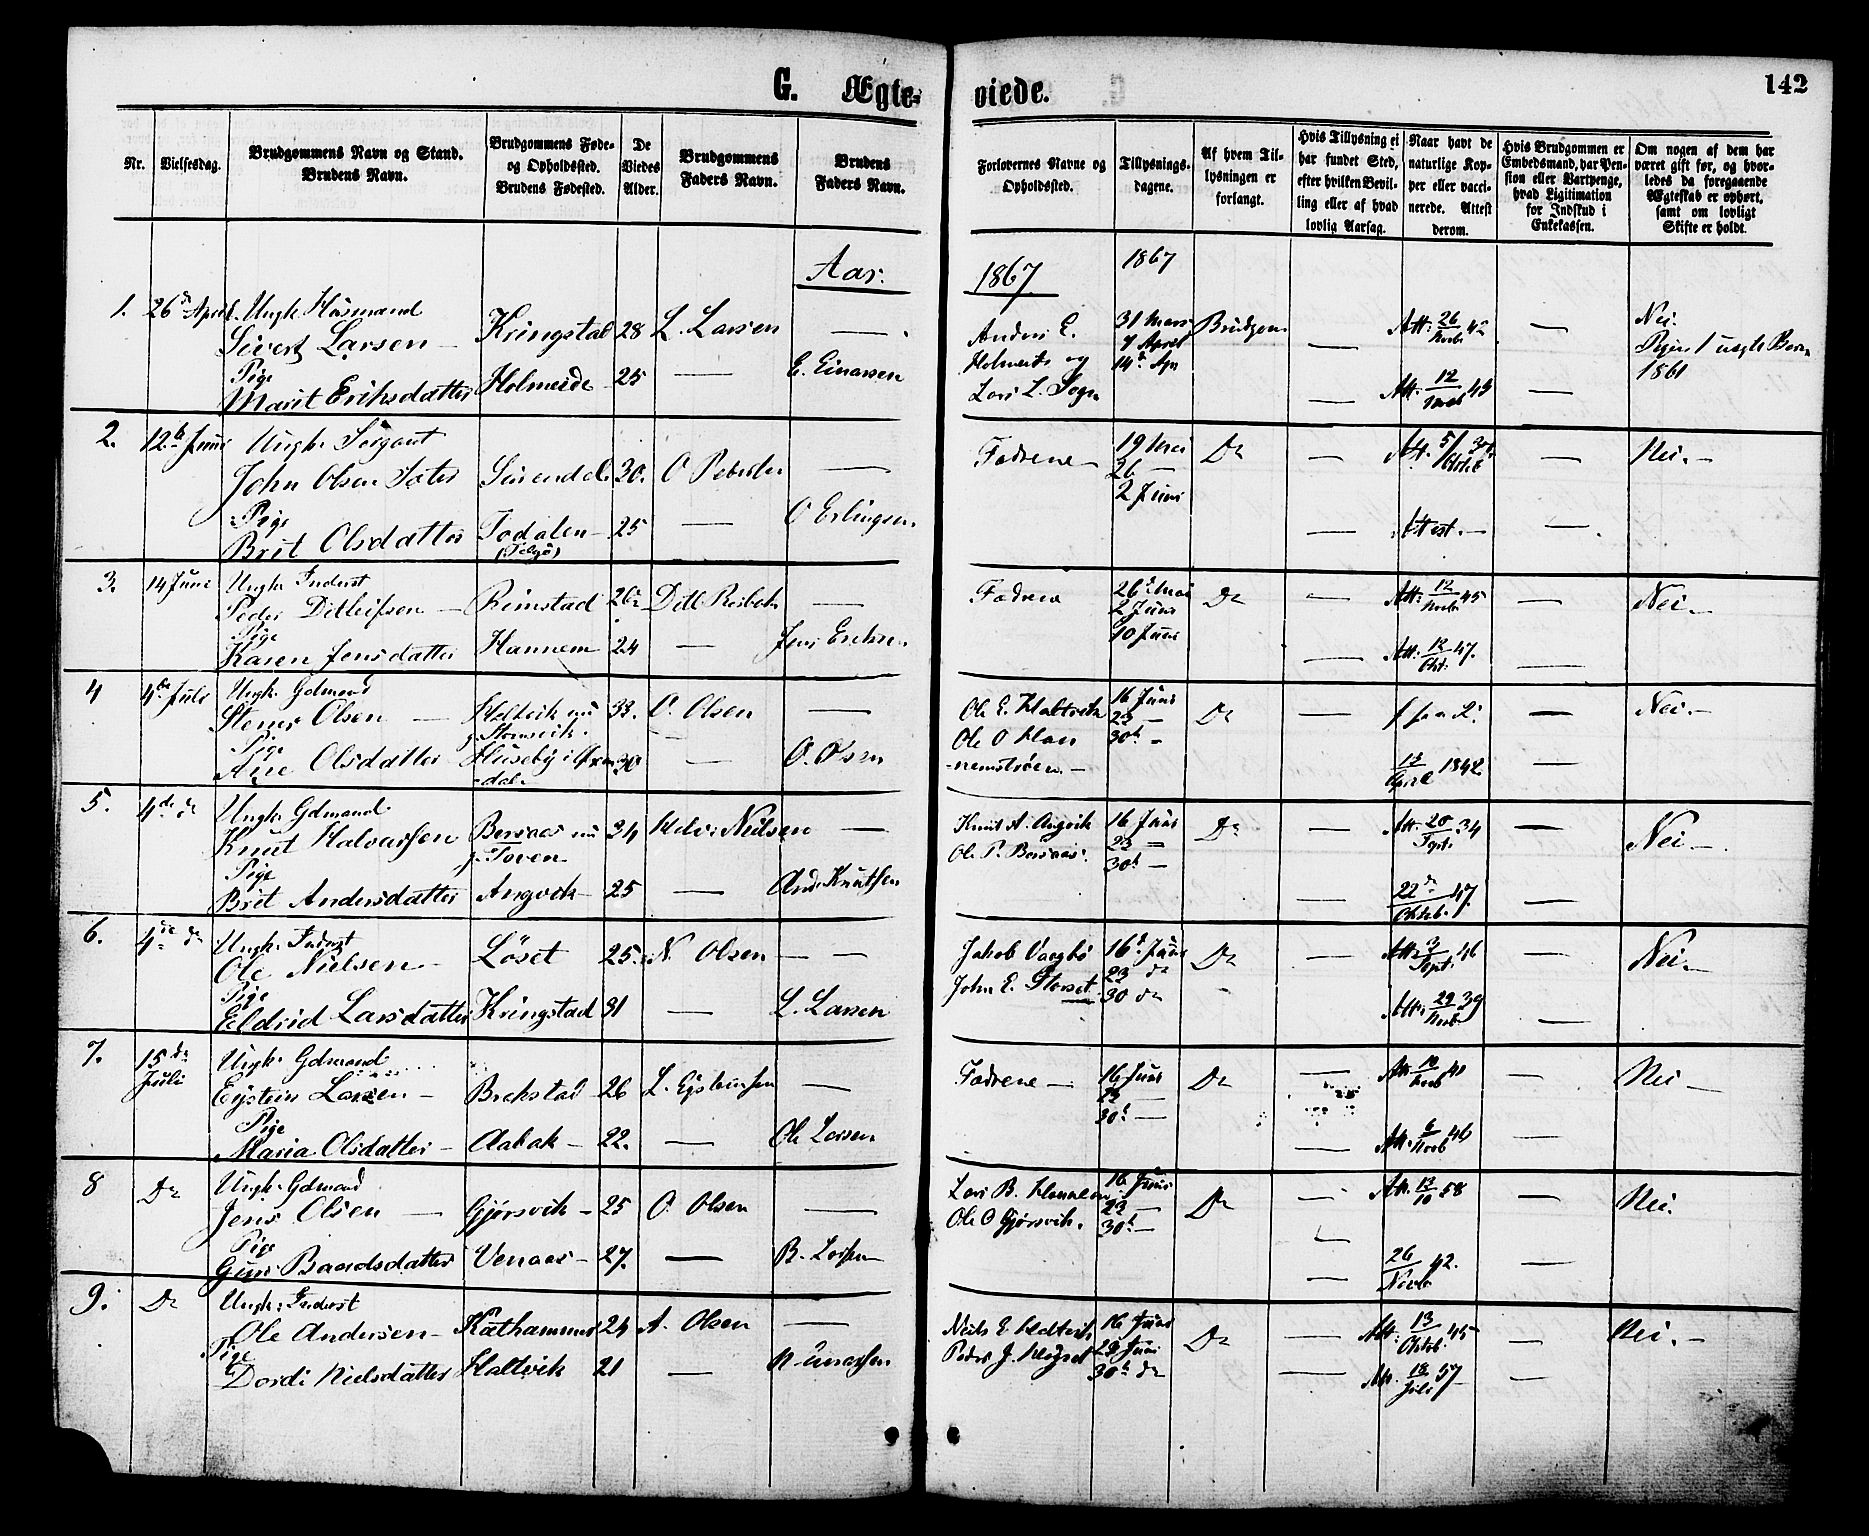 G. Ægte- viede. 142
Nr.
Vielsesdag.
Brudgommens Navn og Stand.
Brudens Navn.
Brudgommens Føde-
og Opholdssted.
Brudens Fødested.
De
Viedes
Alder.
Brudgommens
Faders Navn.
Brudens
Faders Navn.
Forlovernes Navne og
Opholdssted.
Tillysnings-
dagene.
Af hvem Til-
lysningen er
forlangt.
Hvis Tillysning ei
har fundet Sted,
efter hvilken Bevil-
ling eller af hvad
lovlig Aarsag.
Naar havt de
naturlige Kop-
per eller vacci-
nerede. Attest
derom.
Hvis Brudgommen er
Embedsmand, har Pen-
sion eller Vartpenge,
hvad Legitimation
for Indskud i
Enkekassen.
Om nogen af dem har
været gift før, og hvor-
ledes da foregaaende
Ægteskab er ophørt,
samt om lovligt
Skifte er holdt.
Aar. 1867 1867
1. 26de April. Ungk. Husmand
Sivert Larsen – Kringstad 28 L. Larsen —
Pige
Marit Eriksdatter Holmeide 25 — E. Einarsen
Anders E.
Holmeide og
Lars L.
31 Mars
7 April
14de Apr
Brudgom
Att: 26/Novb 42 —
Att: 12 45 —
Nei.
Pigen 1 uægte Barn
1861
2. 12te Juni Ungk. Sergant
John Olsen Sæter Surendal 30. O Pedersen —
Pige
Brit Olsdatter Todalen – 25 — O Erlingsen.
Fædrene –
19 Mai
26 —
2 Juni
Do — Att. 5/ — Nei. –
— Attest. – —
3. 14 Juni Ungk. Inderst
Peder Ditlefsen – Rimstad 26 Ditl Risbak —
Pige
Karen Jensdatter Hannem 24 — Jens Eriksen
Fædrene
26de Mai
2 Juni
10 Juni
Do — Att: 12/Novb 45 — Nei –
— Att: 12/Okt. 47. —
4 4de Juli Ungk. Gdmand
Stener Olsen — Holtvik nu 33. O. Olsen —
Pige
Ane Olsdatter Huseby i Øxen- 30 — O. Olsen
-dal –
Ole E. Holtvik
Ole O Han-
nemstrøen. –
16 Juni
23 —
30te –
Do — — Nei. –
13/April 1842
5. 4de do Ungk: Gdmand
Knut Halvarssen Bersaas nu 34 Halv: Neilsen —
g. Toven
Pige
Brit Andersdatter Angvik – 25 — And. Knutsen
Knut A. Angvik
Ole P. Bersaas.
16 Juni
23 —
30te —
Do — Att: 20/Sept. 34 — Nei –.
22de/Oktob. 47 —
6. 4de do Ungk. Inderst
Ole Nielsen – Løset 25. N. Olsen — —
Pige
Eldrid Larsdatter Kringstad 31 — L. Larsen
Jakob Vaagbø
John E. Storset.
16de Juni
23 do
30 do
Do — Att: 3/Sept. 46 — Nei –
Att: 29/Novb 39 —
7. 15de
Juli Ungk. Gdmand
Eystein Larsen – Brekstad – 26 L. Eysteinsen —
Pige
Maria Olsdatter – Aabak – 22. — Ole Larsen
Fædrene –
16 Juni
23 —
30te —
Do Att. — Nei –
— Att. 6/Novb 46 —
8 Do Ungk. Gdmand
Jens Olsen — Gjørsvik – 25 O. Olsen —
Pige
Guri Baardsdatter Venaas – 27. — B. Larsen
Lars B. Hannem
Ole O Gjørsvik.
16 Juni
23 —
30te —
Do — Att. 13/10 58 — Nei.
— 26/Novb 42. —
9. Do Ungk: Inderst
Ole Andersen – Kathammer 24 A. Olsen —
Pige
Dordi Nielsdatter Haltvik 21 — N. Einarsen
Neils E. Haltvik
Peder J.
16 Juni
23 Juni
30te do
Do — Att: 13/Oktob. 45 — Nei. –
— Att. 18/Juli 57 —